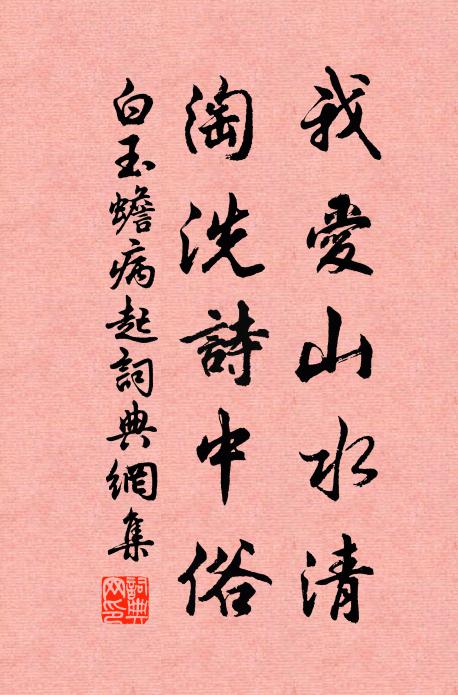 我愛山水清
淘洗詩中俗
白玉蟾病起詞典網集
詞典網印